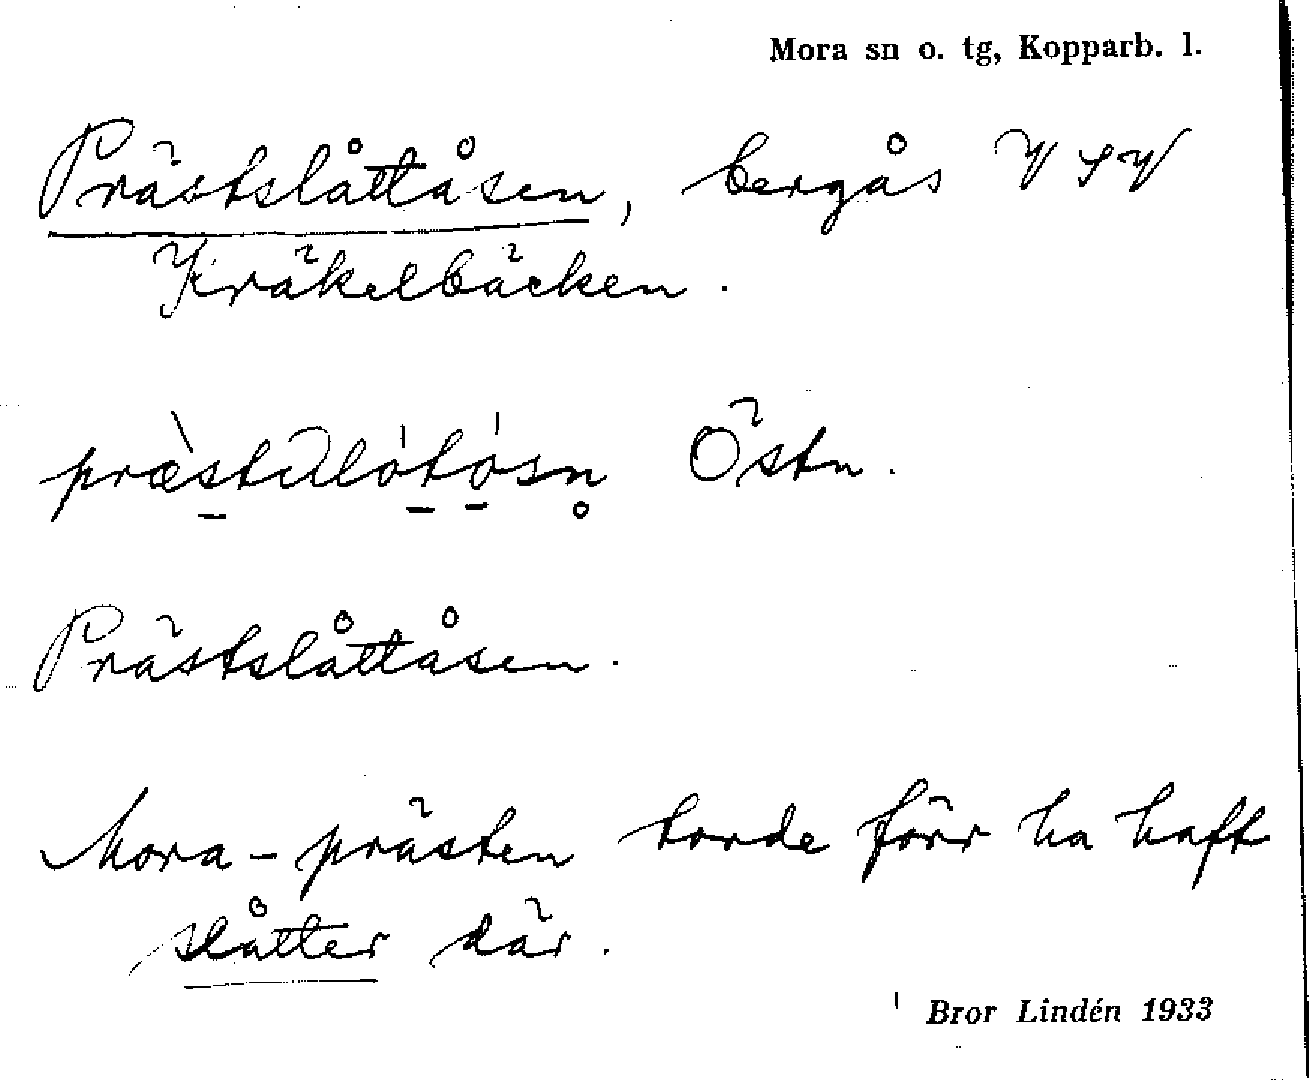 Mora sn o. tg, Kopparb. l.
Prästslåttåsen, bergås V SV
Kräkelbäcken.
Östn.
Prästslåttåsen.
Mora-prästen torde förr ha haft
slåtter där.
Bror Lindén 1933